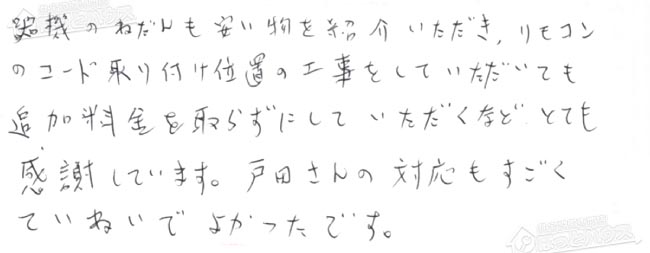 器機のねだんも安い物を紹介いただき、リモコン
のコード取り付け位置の工事をしていただいても
追加料金を取らずにしていただくなど とても
感謝しています。戸田さんの対応もすごく
ていねいでよかったです。